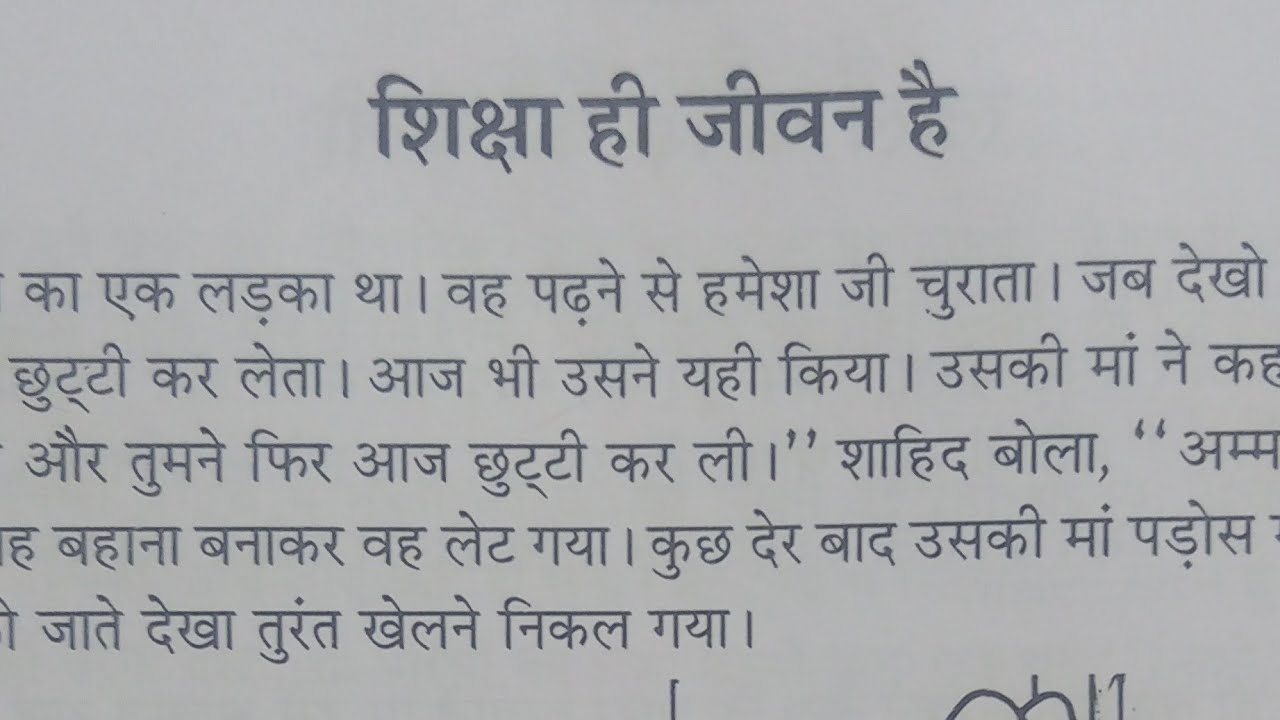 शिक्षा ही जीवन है
का एक लड़का था। वह पढ़ने से हमेशा जी चुराता। जब देखो
छुट्टी कर लेता। आज भी उसने यही किया। उसकी मां ने कह
और तुमने फिर आज छुट्टी कर ली।’’ शाहिद बोला, ‘‘अम्म
ह बहाना बनाकर वह लेट गया। कुछ देर बाद उसकी मां पड़ोस
जाते देखा तुरंत खेलने निकल गया।